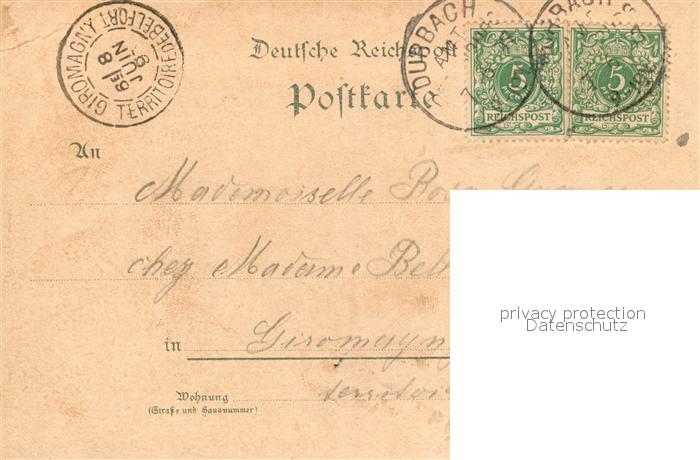 GIROMAGNY TERRITOIRE DE BELFORT
8
JUIN
Deutsche Reichspost
Postkarte
DURBACH
5 5
REICHSPOST REICHSPOST
An
Mademoiselle Rosa
chez Madame
in Giromagny
Wohnung
(Straße und Hausnummer)
privacy protection
Datenschutz